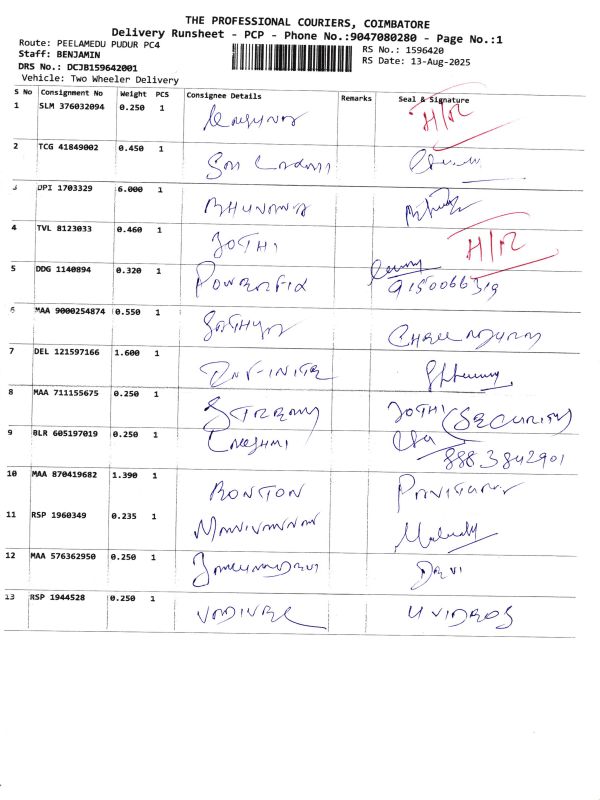 THE PROFESSIONAL COURIERS, COIMBATORE
Delivery Runsheet - PCP - Phone No.:9047080280 - Page No.:1
Route: PEELAMEDU PUDUR PC4
RS No.: 1596420
Staff: BENJAMIN
RS Date: 13-Aug-2025
DRS No.: DCJB159642001
Vehicle: Two Wheeler Delivery
S No Consignment No Weight PCS Consignee Details Remarks Seal & Signature
1 SLM 376032094 0.250 1 H/R
2 TCG 41849002 0.450 1
3 DPI 1703329 6.000 1 BHUVANA
4 TVL 8123033 0.460 1 JOTHI H/R
5 DDG 1140894 0.320 1 POWERFIX 9150066319
6 MAA 9000254874 0.550 1 SATHYA
7 DEL 121597166 1.600 1 INFINITE
8 MAA 711155675 0.250 1 JOTHI (SECURITY)
9 BLR 605197019 0.250 1 LAKSHMI 8883842901
10 MAA 870419682 1.390 1 BONTON
11 RSP 1960349 0.235 1 MANIVANNAN
12 MAA 576362950 0.250 1 DEVI
13 RSP 1944528 0.250 1 VADIVEL